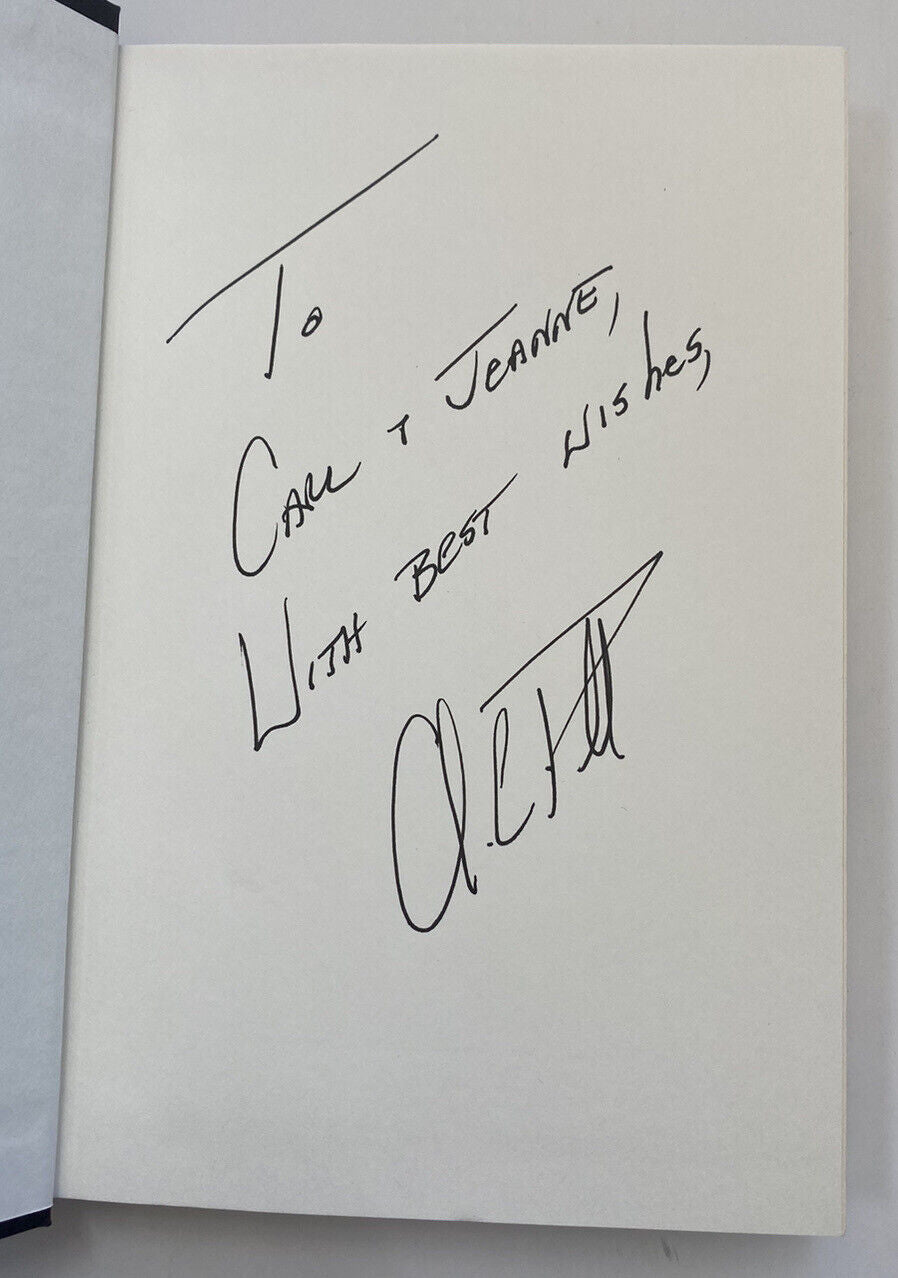 To
Carl + Jeanne,
With Best Wishes,